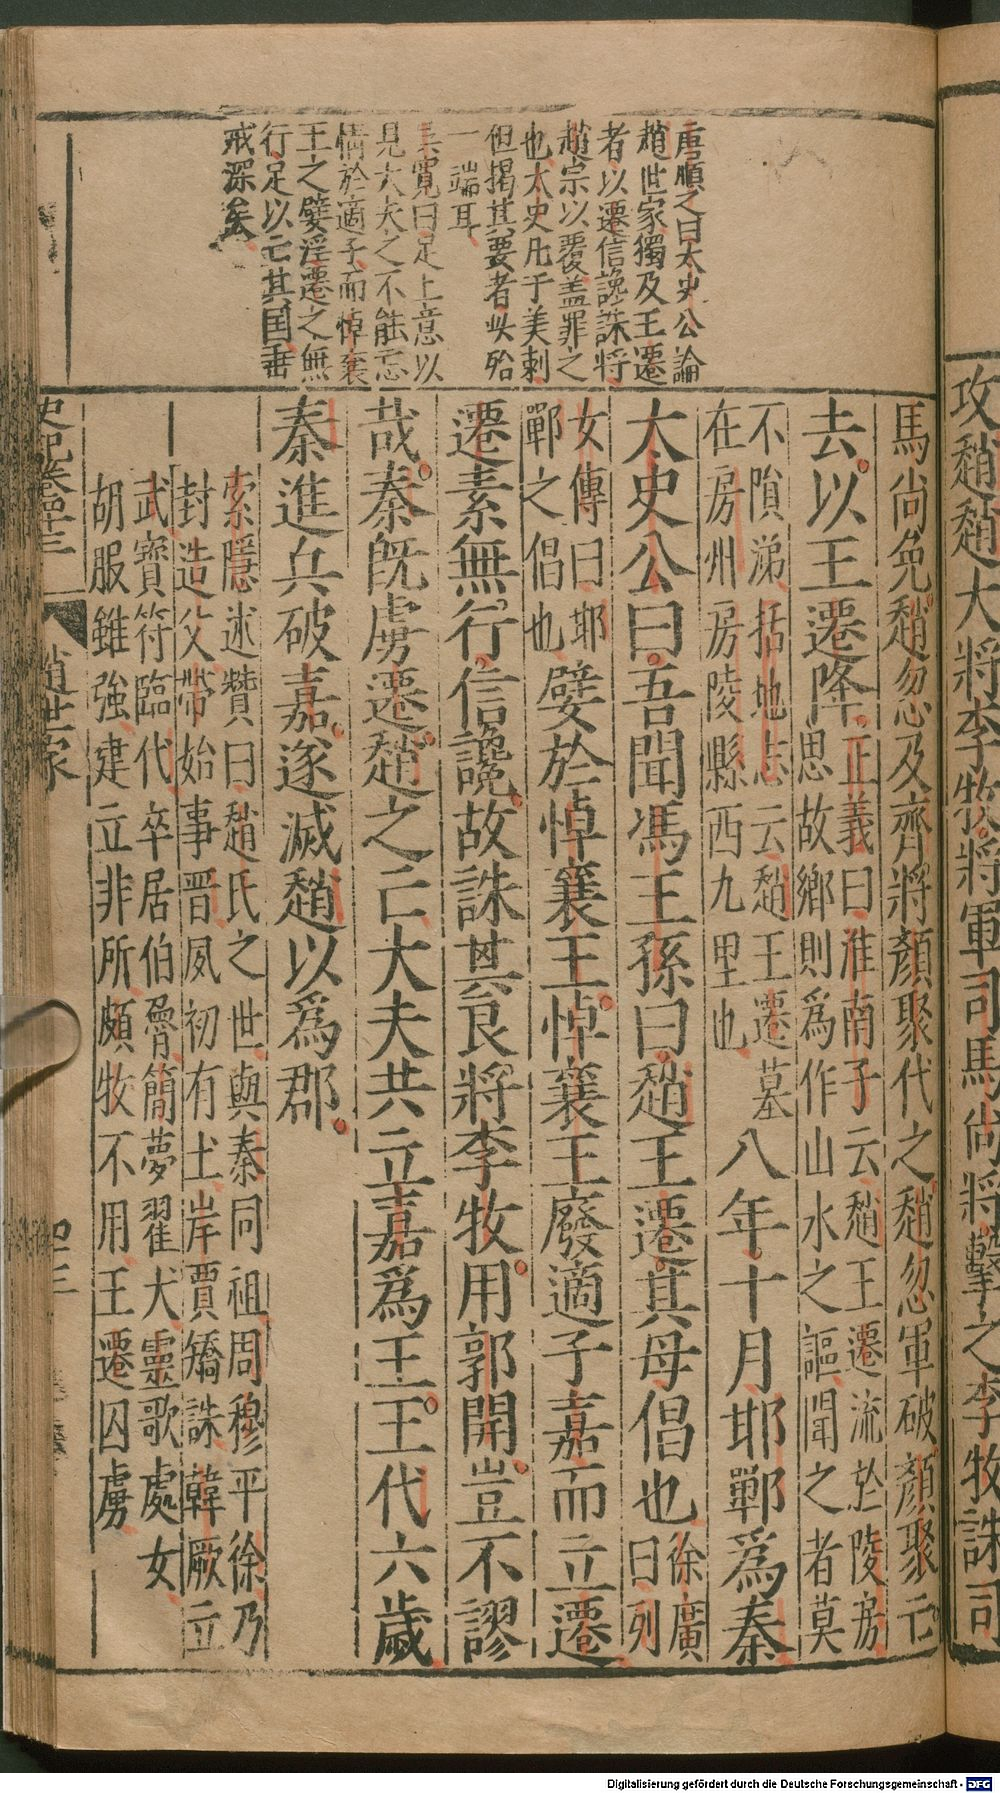 攻趙趙大將李牧將軍司馬尚將擊之李牧誅司
唐順之曰太史公論
趙世家獨及王遷
者以遷信讒誅將
趙宗以覆盖罪之
也太史凡于美刺
但揭其要者此殆
一端耳
吴寬曰足上意以
見大夫之不能忘
情於適子而悼襄
王之嬖淫遷之無
行足以亡其国垂
戒深矣
馬尚免趙忽及齊將顏聚代之趙忽軍破顏聚亡
去以王遷降正義曰淮南子云趙王遷流於陵房
思故鄉則爲作山水之謳聞之者莫
不隕涕括地志云趙王遷墓
在房州房陵縣西九里也
八年十月邯鄲爲秦
太史公曰吾聞馮王孫曰趙王遷其母倡也徐廣
曰列
女傳曰邯
鄲之倡也
嬖於悼襄王悼襄王廢適子嘉而立遷
遷素無行信讒故誅其良將李牧用郭開豈不謬
哉秦既虜遷趙之亡大夫共立嘉爲王王代六歲
秦進兵破嘉遂滅趙以爲郡
索隱述贊曰趙氏之世與秦同祖周穆平徐乃
封造父帶始事晋夙初有土岸賈矯誅韓厥立
武寶符臨代卒居伯魯簡夢翟犬靈歌處女
胡服雖強建立非所頗牧不用王遷囚虜
史記卷四十三
趙世家
四三
Digitalisierung gefördert durch die Deutsche Forschungsgemeinschaft - DFG